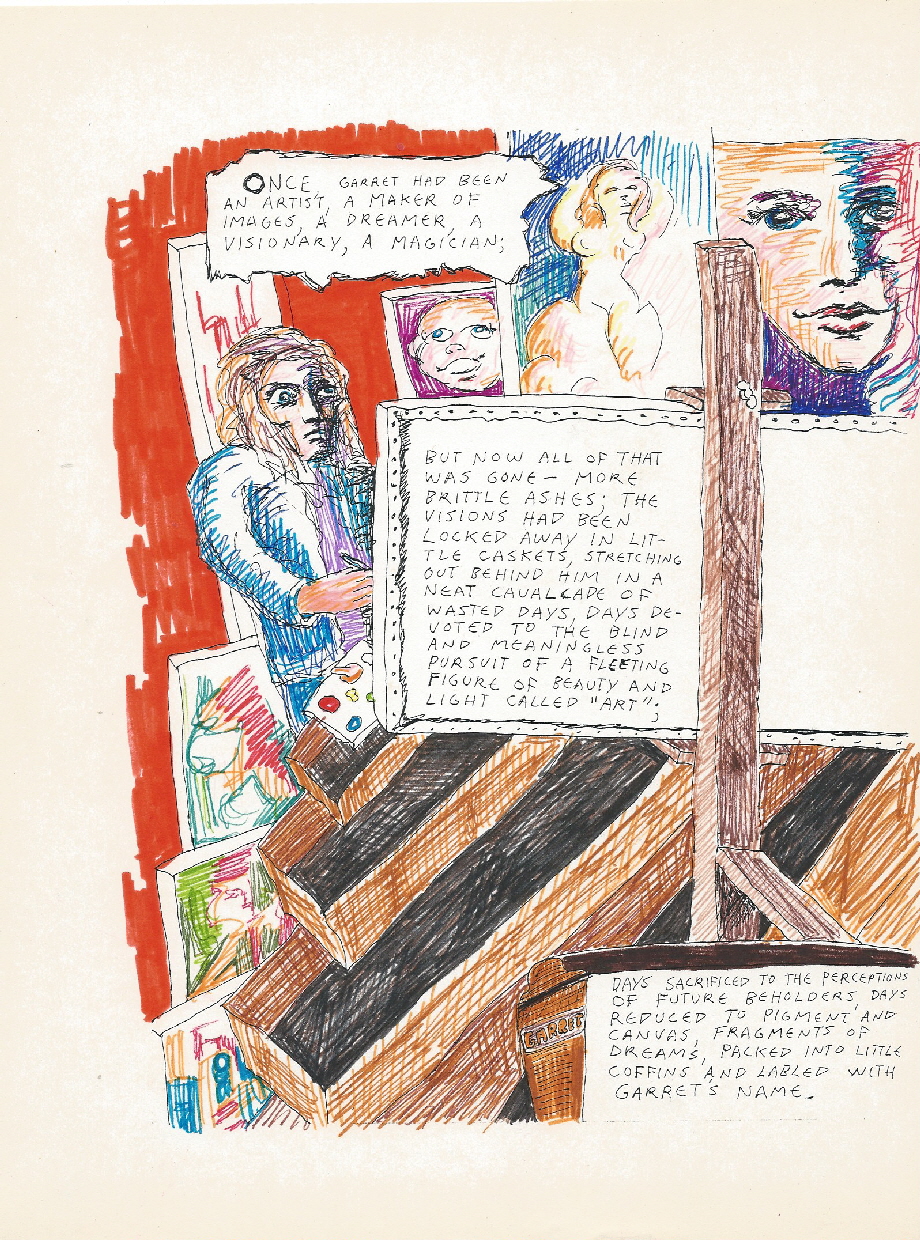 ONCE, GARRET HAD BEEN
AN ARTIST, A MAKER OF
IMAGES, A DREAMER, A
VISIONARY, A MAGICIAN;
BUT NOW ALL OF THAT
WAS GONE — MORE
BRITTLE ASHES; THE
VISIONS HAD BEEN
LOCKED AWAY IN LIT-
TLE CASKETS, STRETCHING
OUT BEHIND HIM IN A
NEAT CAVALCADE OF
WASTED DAYS, DAYS DE-
VOTED TO THE BLIND
AND MEANINGLESS
PURSUIT OF A FLEETING
FIGURE OF BEAUTY AND
LIGHT CALLED "ART";
DAYS SACRIFICED TO THE PERCEPTIONS
OF FUTURE BEHOLDERS, DAYS
REDUCED TO PIGMENT AND
CANVAS, FRAGMENTS OF
DREAMS, PACKED INTO LITTLE
COFFINS AND LABLED WITH
GARRET'S NAME.
GARRET